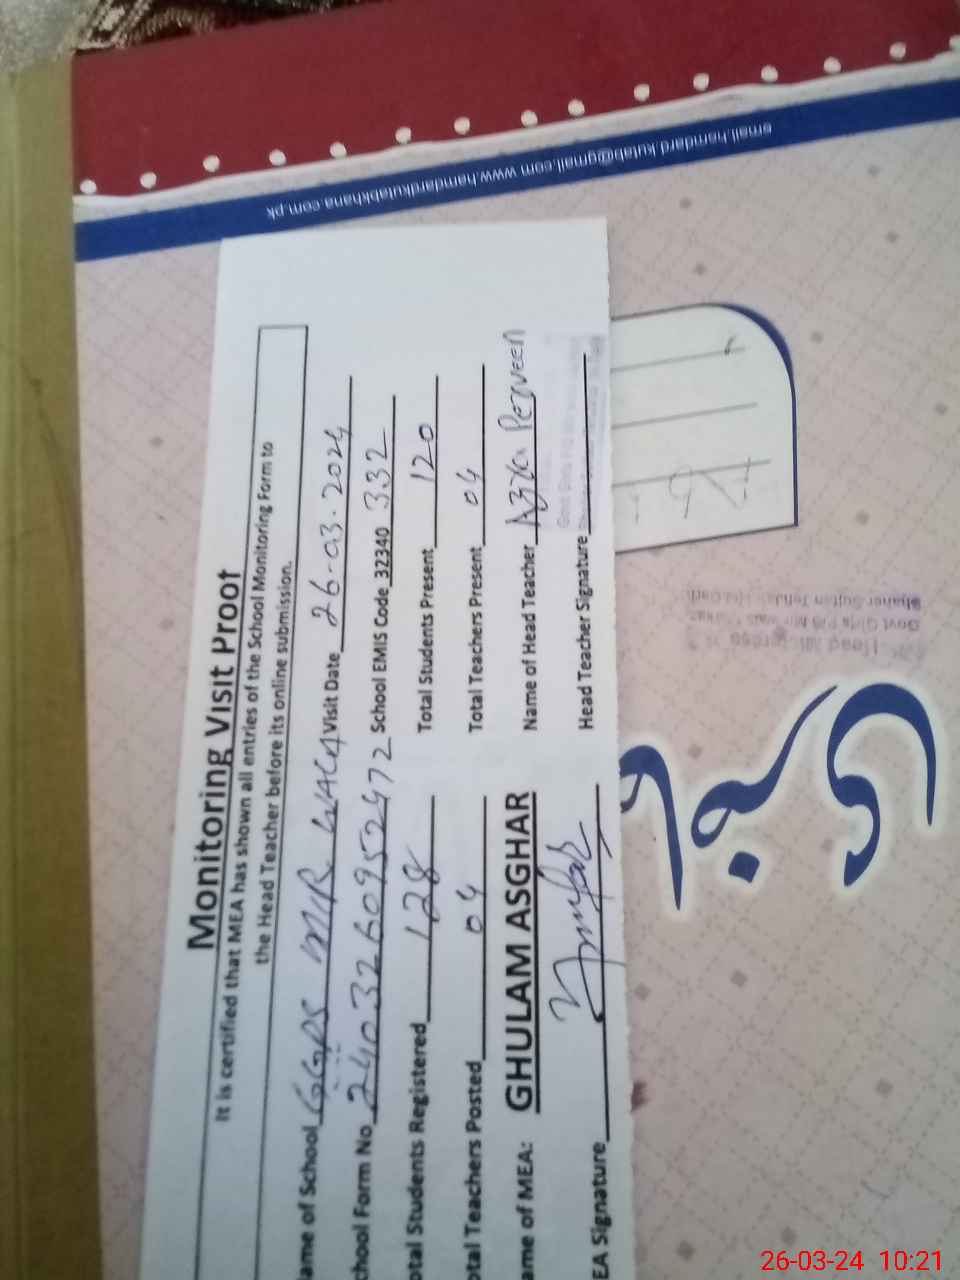 Monitoring Visit Proof
It is certified that MEA has shown all entries of the School Monitoring Form to
the Head Teacher before its online submission.
ame of School GGPS MIR WALA Visit Date 26-03-2024
chool Form No 24032609952472 School EMIS Code 32340 332
otal Students Registered 128 Total Students Present 120
otal Teachers Posted 04 Total Teachers Present 04
ame of MEA: GHULAM ASGHAR Name of Head Teacher Azra Perveen
EA Signature Head Teacher Signature
email.hamdard.kutab@gmail.com www.hamdardkutabkhana.com.pk
26-03-24 10:21